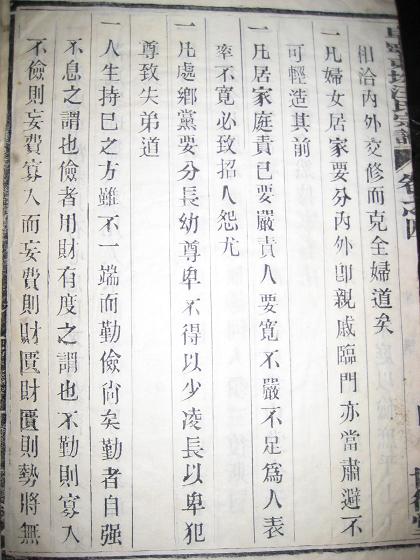 汪氏宗譜
卷之四
相洽內外交修而克全婦道矣
一凡婦女居家要分內外卽親戚臨門亦當肅避不
可輕造其前
一凡居家庭責己要嚴責人要寬不嚴不足爲人表
率不寬必致招人怨尤
一凡處鄉黨要分長幼尊卑不得以少凌長以卑犯
尊致失弟道
一人生持已之方雖不一端而勤儉尙矣勤者自强
不息之謂也儉者用財有度之謂也不勤則寡入
不儉則妄費寡入而妄費則財匱財匱則勢將無